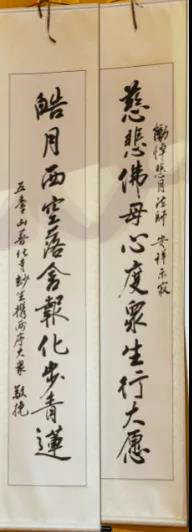 慟悼悲月法師 安祥示寂
慈悲佛母心度眾生行大愿
皓月西空落舍報化步青蓮
五臺山普化寺妙生携兩序大眾 敬挽